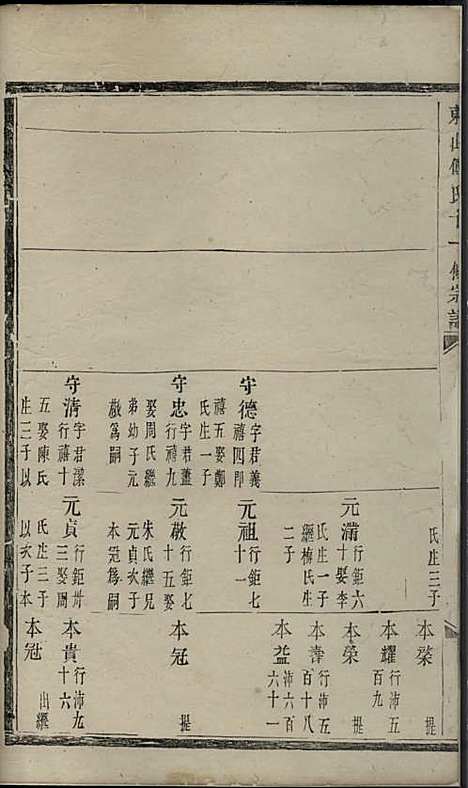 東山傅氏十一修宗譜
氏生三子
本榮 提
本耀 行沛五
百九
元滿 行鉅六
十娶李
氏生一子
繼梅氏生
二子
本榮
本壽 行沛五
百十八
本益 沛六百
六十一
守德 字君義
禧四郎
禧五娶鄭
氏生一子
元祖 行鉅七
十一
守忠 字君藎
行禧九
娶周氏繼
弟幼子元
啟為嗣
元啟 行鉅七
十五娶
朱氏繼兄
元貞次子
本冠為嗣
本冠 提
守清 字君潔
行禧十
五娶陳氏
生二子以
元貞 行鉅卅
三娶周
氏生三子
以次子本
本貴 行沛九
十六
本冠 出繼